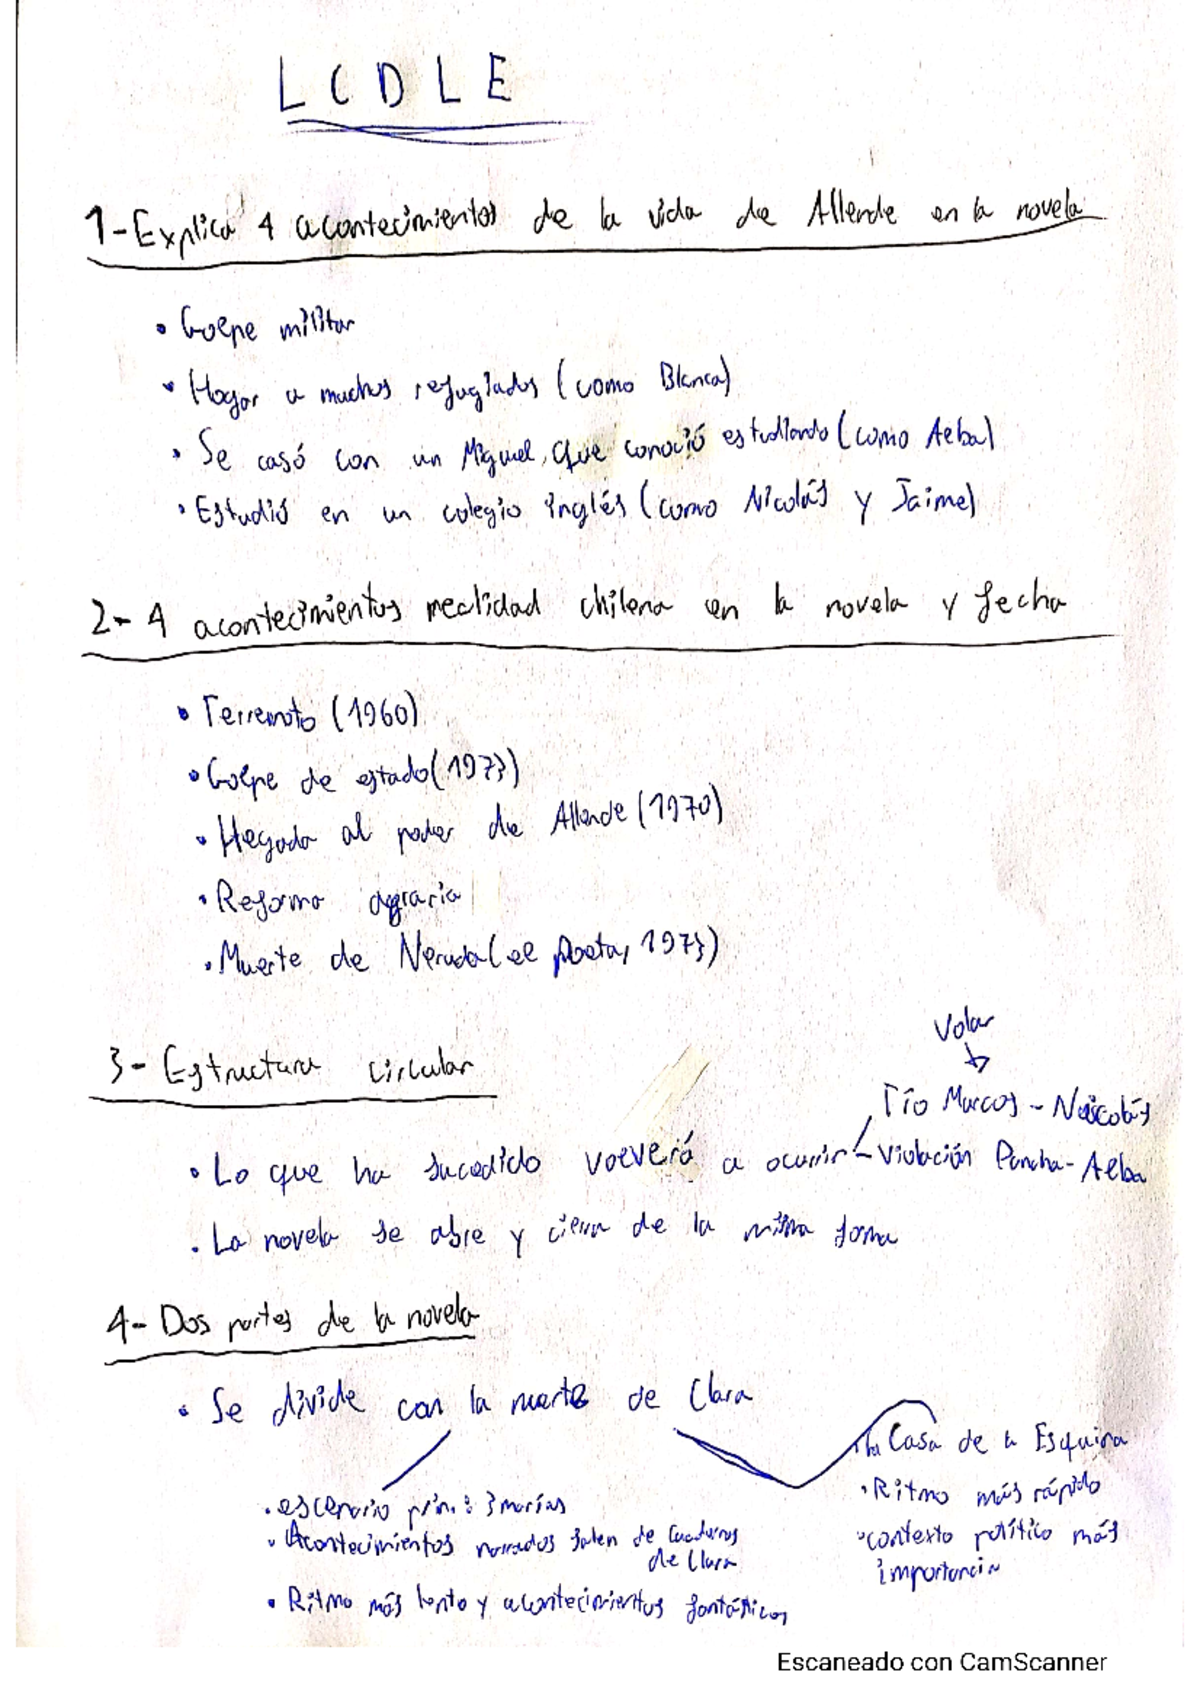 LCDLE
1-Explica 4 acontecimientos de la vida de Allende en la novela
• Golpe militar
• Hogar a muchos refugiados (como Blanca)
• Se casó con un Miguel, que conoció estudiando (como Alba)
• Estudió en un colegio inglés (como Nicolás y Jaime)
2- 4 acontecimientos realidad chilena en la novela y fecha
• Terremoto (1960)
• Golpe de estado (1973)
• Llegada al poder de Allende (1970)
• Reforma agraria
• Muerte de Neruda (el poeta, 1973)
3- Estructura circular
Volar
Tío Marcos - Nicolás
• Lo que ha sucedido volverá a ocurrir - Violación Pancha - Alba
• La novela se abre y cierra de la misma forma
4- Dos partes de la novela
• Se divide con la muerte de Clara
• escenario prin.: 3 marías
• Acontecimientos narrados salen de cuadernos de Clara
• Ritmo más lento y acontecimientos fantásticos
la Casa de la Esquina
• Ritmo más rápido
• contexto político más
importancia
Escaneado con CamScanner